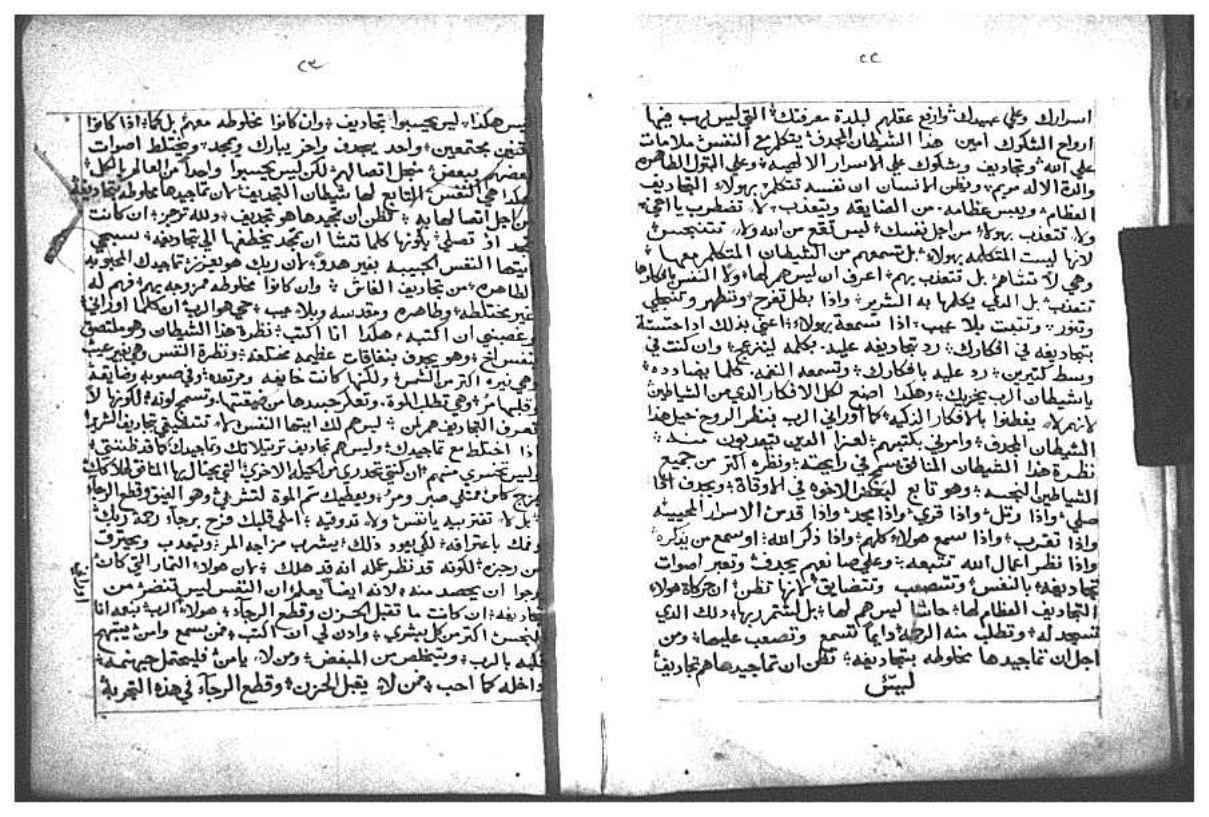 ٢٢
اسرارك وعلي عبيدك؛ وارفع عقلهم لبلدة معرفتك؛ التي ليس يهب فيها
ارواح الشكوك امين هذا الشيطان المجدف؛ يتكلم مع النفس ملامات
علي الله؛ وتجاديف وشكوك علي الاسرار الالهيه؛ وعلي البتول الطاهره
والدة الاله مريم؛ ويظن الانسان ان نفسه تتكلم بهولاء التجاديف
العظام؛ ويبس عظامه من الضايقه ويتعذب؛ لا تضطرب يا اخي؛
ولا تتعذب بهولاء؛ من اجل نفسك؛ ليس تقع من الله ولا تتنجس؛
لانها ليست المتكلمه بهولاء؛ بل تسمعهم من الشيطان المتكلم معها؛
وهي لا تشاهم؛ بل تتعذب بهم؛ اعرف ان ليس هم لها؛ ولا النفس بافكارها
تتعذب؛ بل الذي يكلمها به الشرير؛ واذا بطل تفرح؛ وتتطهر وتنجلي
وتنور؛ وتثبت بلا عيب؛ اذا سمعة بهولاء؛ اعني بذلك اذا حسسة
بتجاديفه في افكارك؛ رد تجاديفه عليه. بكلمه لينزعج؛ وان كنت في
وسط كتيرين؛ رد عليه بافكارك؛ وتسمعه النفه. كلما يضادده؛
ياشيطان الرب يخزيك؛ وهكذا اصنع لكل الافكار الذي من الشياطين
لانهم لا يفطنوا بالافكار الذكيه؛ كما اوراني الرب بنظر الروح حيل هذا
الشيطان المجدف؛ وامرني بكتبهم؛ لعزا الدين يتعذبون منه؛
نظرة هذا الشيطان المنافق سمج في رايحته؛ ونظره اكتر من جميع
الشياطين النجسه؛ وهو تابع لبعض الاخوه في الاوقاة؛ ويجدف اذا
صلي؛ واذا رتل؛ واذا قري؛ واذا مجد؛ واذا قدس الاسرار المحييه
واذا تقرب؛ واذا سمع هولاء كلهم؛ واذا ذكر الله؛ او سمع من يذكره؛
واذا نظر اعمال الله تتبعه؛ وعلي صانعهم يجدف؛ وتعبر اصوات
تجاديفه؛ بالنفس؛ وتتصعب وتتضايق؛ لانها تظن؛ ان حركاة هولاء
التجاديف العظام لها؛ حاشا ليس هم لها؛ بل لشتم ربها؛ ذلك الذي
تسجد له؛ وتطلب منه الرحمه دايما تسمع وتصعب عليها؛ ومن
اجل ان تماجيدها مخلوطه بتجاديفه؛ تظن ان تماجيدها هم تجاديف؛
ليس
٢٣
ليس هكذا؛ ليس يحسبوا تجاديف؛ وان كانوا مخلوطه معهم بل كما؛ اذا كانوا
اتنين مجتمعين؛ واحد يجدف واخر يبارك ويمجد؛ ويختلط اصوات
بعضهم ببعض؛ من اجل اتصالهم؛ لكن ليس يحسبوا واحدا من العالم الكل؛
هكذا هي النفس التابع لها شيطان التجديف؛ لان تماجيدها مخلوطه بتجاديفه
من اجل اتصالها به؛ تظن ان تمجيدها هو تجديف؛ ولله ترجز؛ ان كانت
تمجد او تصلي؛ بكونها كلما تشا ان تمجد يخطفها الي تجاديفه؛ سبحي
ايتها النفس الحبيبه بغير هدو؛ لان ربك هو يفرز؛ تماجيدك المحبوبه
الطاهره؛ من تجاديف الغاش؛ وان كانوا مخلوطه ممزوجه بهم؛ فهم له
غير مختلطه؛ وطاهره ومقدسه وبلا عيب؛ حي هو الرب؛ ان كلما اوراني؛
وغصبني ان اكتبه؛ هكذا انا اكتب؛ نظرة هذا الشيطان وهو ملتصق
بنفس اخ؛ وهو يجدف بنفاقات عظيمه مختلفه؛ ونظرة النفس وهي بغير عيب
وهي نيره اكتر من الشمس؛ ولكنها كانت خايفه ومرتعده؛ وفي صعوبه وضايقه
وقلبها مر؛ وهي تطلب الموة. وتعكر جسدها من ضيقتها؛ وتسمج لونه؛ لكونها لا
تعرف التجاديف هم لمن؛ ليس هم لك ايتها النفس؛ لا تتضايقي بتجاديف الشرير
اذا اختلط مع تماجيدك؛ وليس هم تجاديف ترتيلاتك وتماجيدك كما قد ظننتي؛
وليس تخسري منهم؛ ان كنتي تحدري من الحيل الاخري؛ التي يحتال بها المنافق لهلاكك
يمزج كاس ممتلي صبر ومر؛ ويعطيك سم الموة لتشربي؛ وهو الضيق وقطع الرجاء
بل لا تقتربيه يا نفس؛ ولا تدوقيه؛ املي قلبك فرح برجاء رحمة ربك؛
وفمك باعترافه؛ لكي يعود ذلك؛ يشرب مزاجه المر؛ ويتعذب ويحترق
من رجزه؛ لكونه قد نظر عمله انه قد هلك؛ لان هولاء التمار التي كان
يرجوا ان يحصد منه؛ لانه ايضا يعلم؛ ان النفس ليس تنضر من
تجاديفه؛ ان كانت ما تقبل الحزن وقطع الرجاء؛ هولاء الرب؛ تبعه انا
النجس؛ اكتر من كل بشري؛ واذن لي ان اكتب؛ فمن يسمع وامن؛ يبتهج
قلبه بالرب؛ ويتخلص من المبغض؛ ومن لا يامن؛ فليحتمل جهنمه؛
داخله كما احب؛ فمن لا يقبل الحزن؛ وقطع الرجاء في هذه التجربة؛